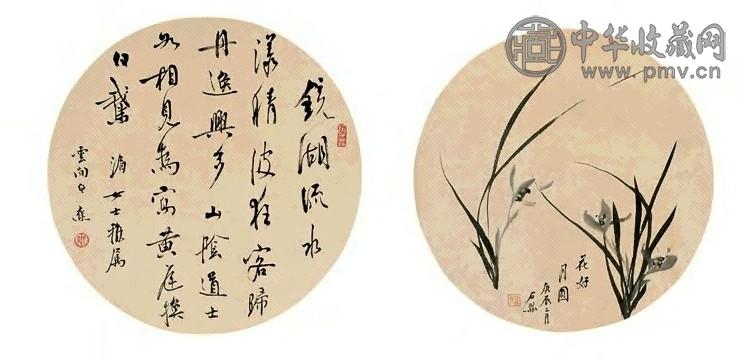 鏡湖流水
漾清波狂客歸
舟逸興多山陰道士
如相見為寫黃庭換
白鵝
女士雅屬
雲間白蕉
中华收藏网
www.pmv.cn
花好
月圓
庚辰二月